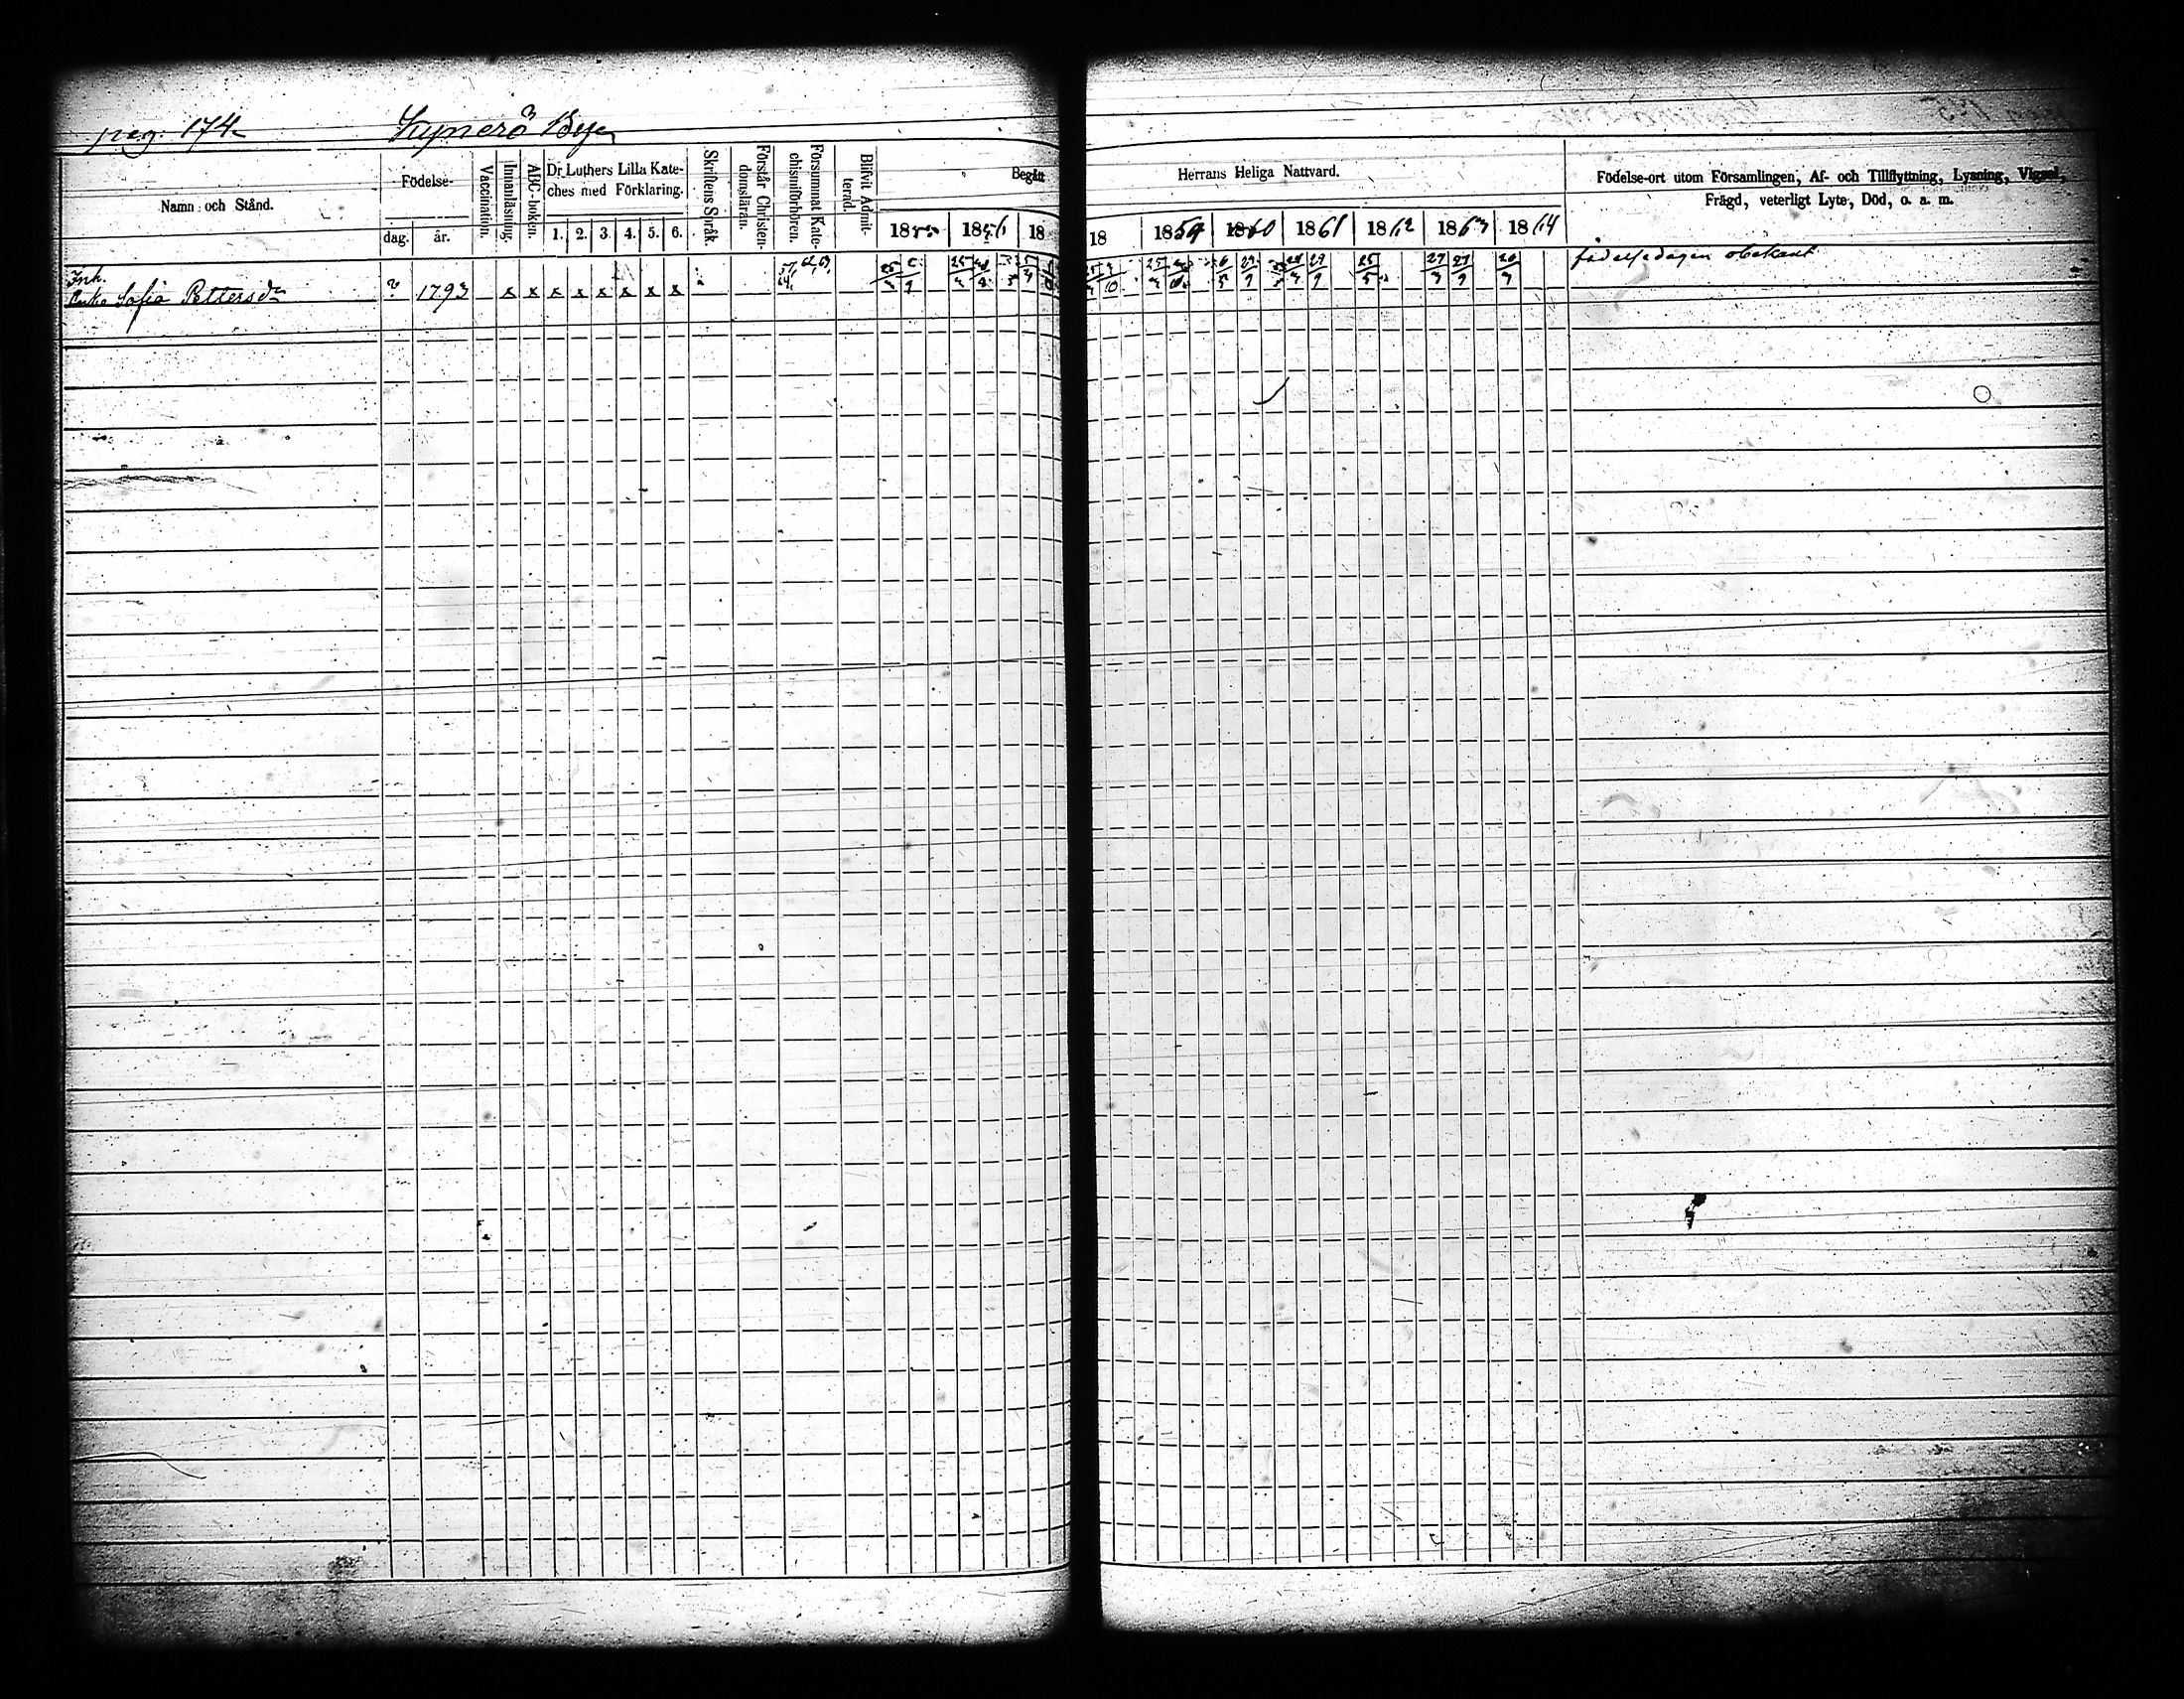 pag. 174
Byn
Namn och Stånd.
Födelse-
dag.
år.
Vaccination.
Innanläsning.
ABC-boken.
Dr Luthers Lilla Kate-
ches med Förklaring.
1. 2. 3. 4. 5. 6.
Skriftens Språk.
Förstår Christen-
domsläran.
Försummat Kate-
chismiförhören.
Blifvit Admit-
terad.
Begått
1855 1856 18
Herrans Heliga Nattvard.
18 1859 1860 1861 1862 1863 1864
Födelse-ort utom Församlingen, Af- och Tillflyttning, Lysning, Vigsel,
Frägd, veterligt Lyte, Död, o. a. m.
Inh.
Enka Sofia Pettersdr ? 1793 x x x x x x x x
födelsedagen obekant